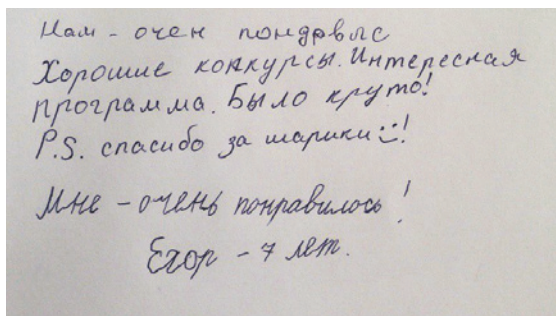 Нам - очен пондрвыс
Хорошие конкурсы. Интересная
программа. Было круто!
P.S. спасибо за шарики :)!
Мне - очень понравилось!
Егор - 7 лет.